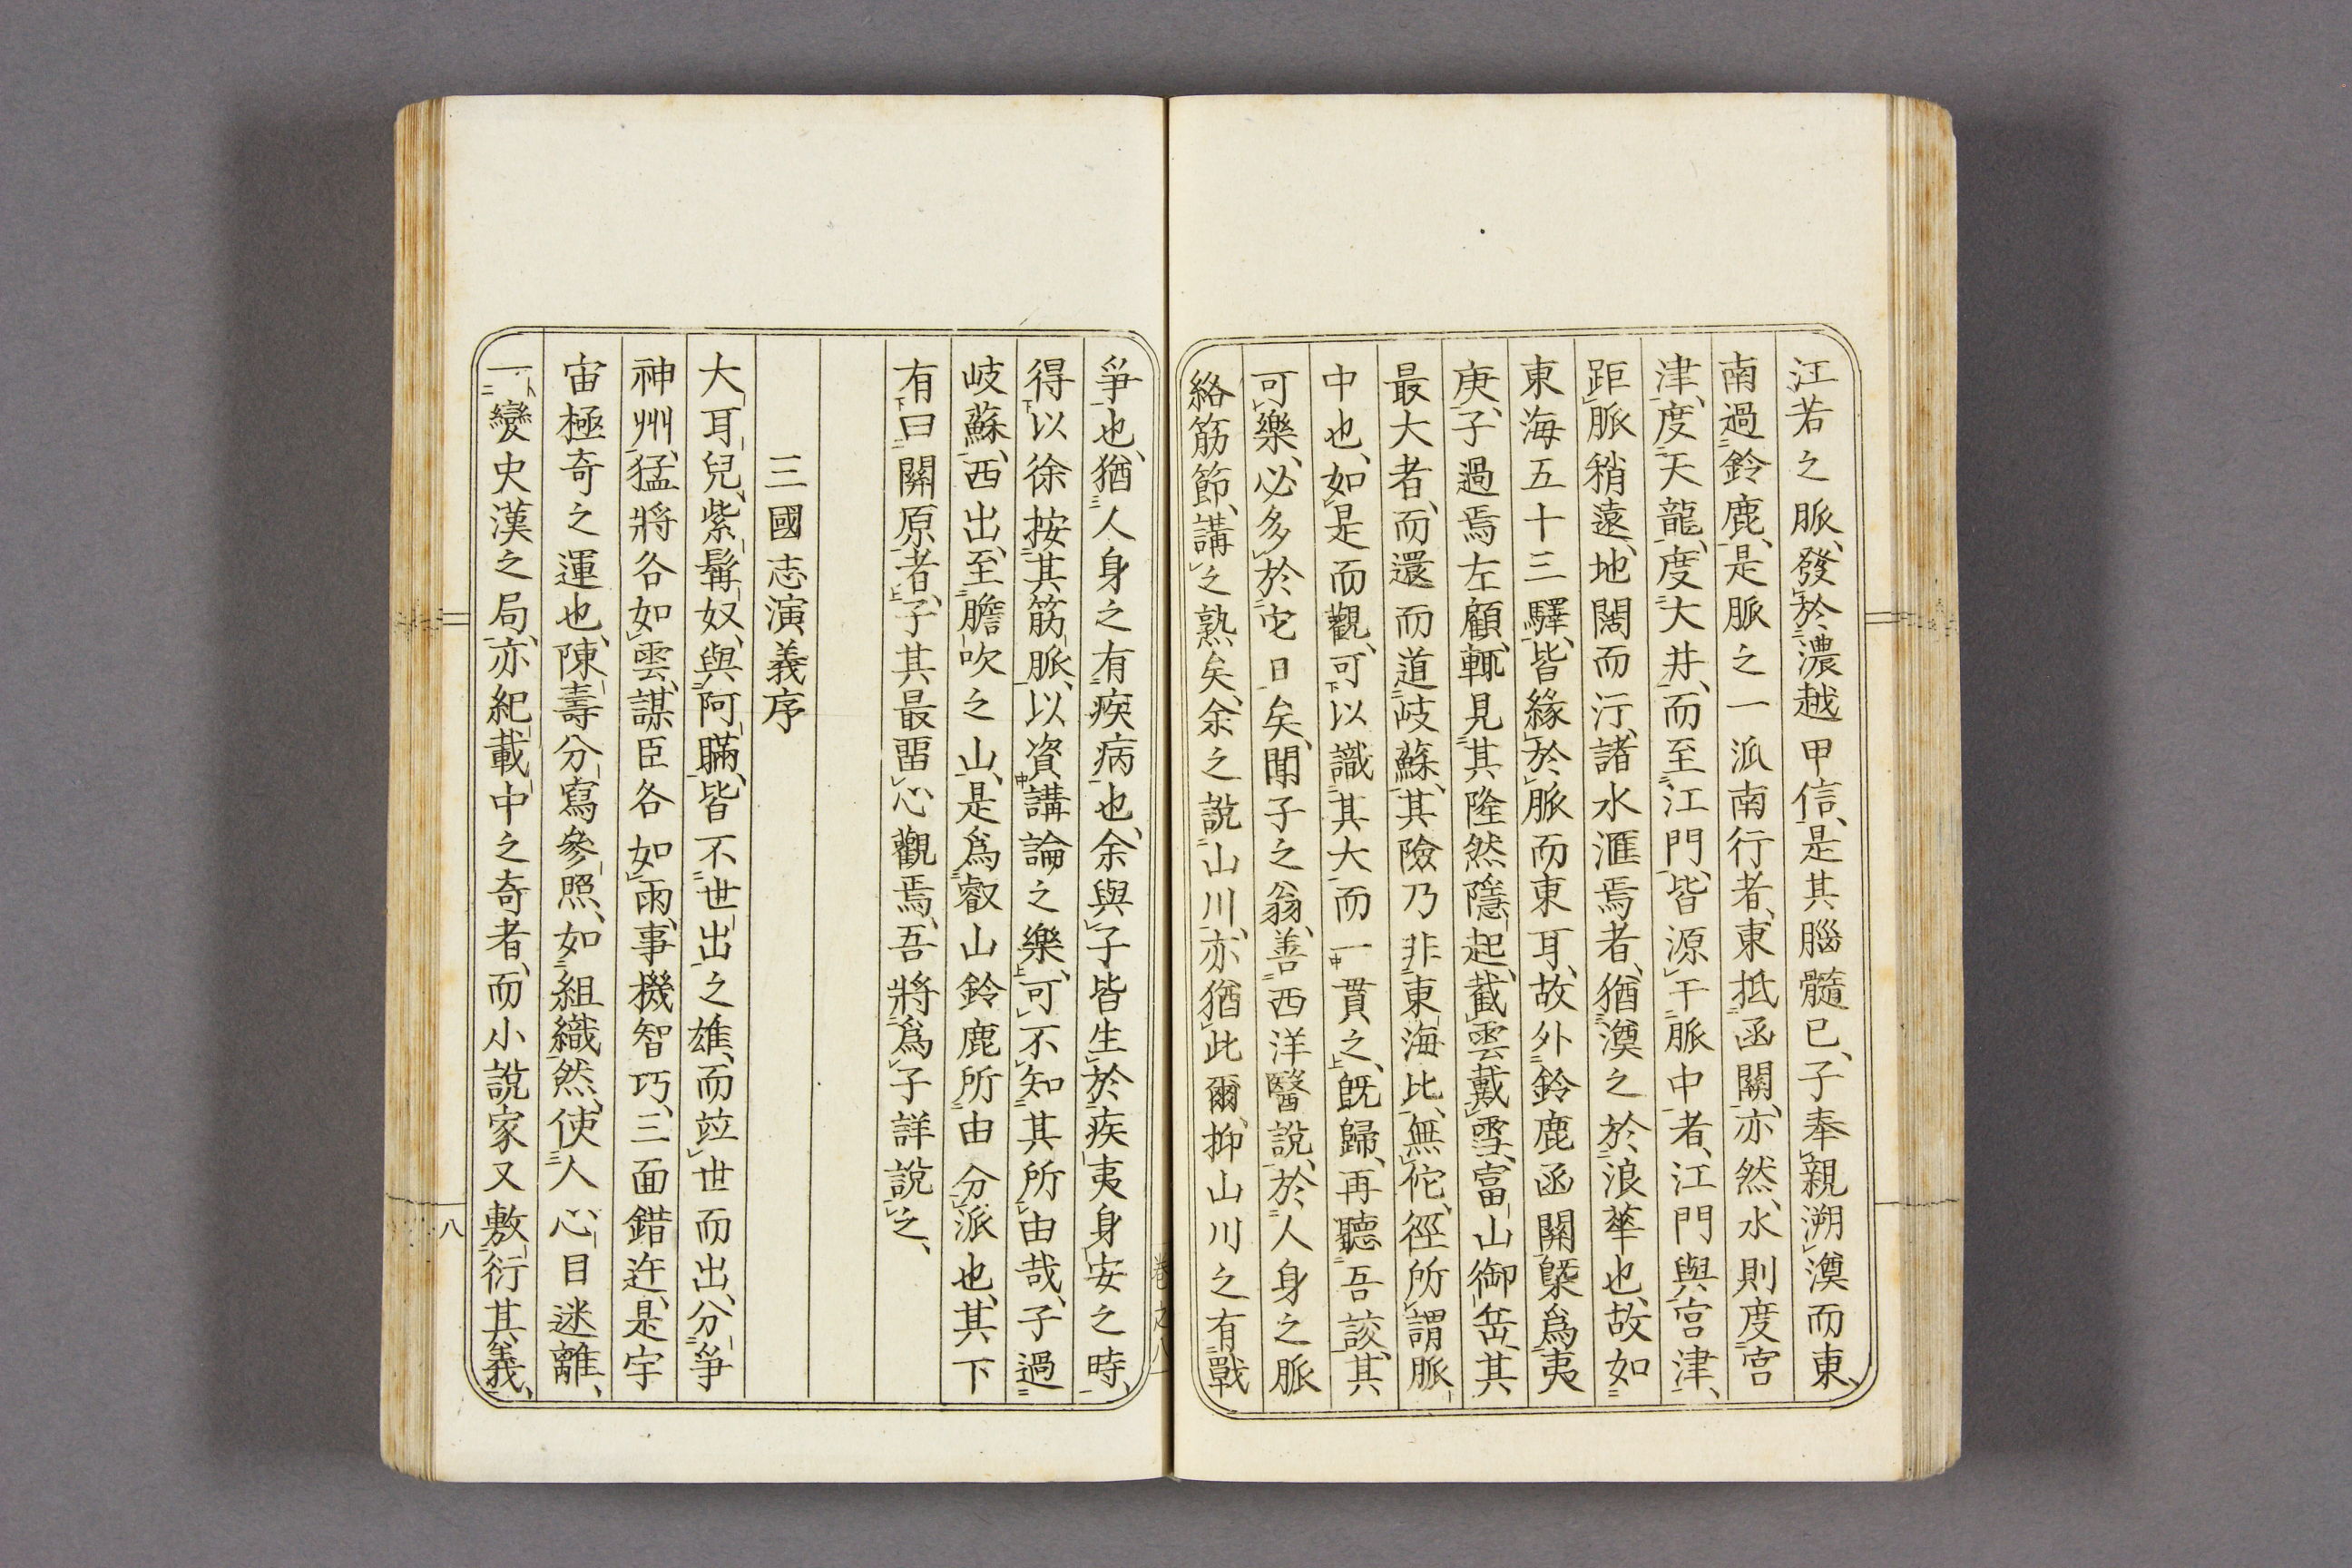 江若之脈、發於濃越甲信、是其腦髓已、子奉親溯澳而東、
南過鈴鹿、是脈之一派南行者、東抵函關、亦然、水則度宮
津、度天龍、度大井、而至江門、皆源于脈中者、江門與宮津、
距脈稍遠、地闊而汙、諸水滙焉者、猶澳之於浪華也、故如
東海五十三驛、皆緣於脈而東耳、故外鈴鹿函關槩爲夷
庚、子過焉左顧、輒見其隆然隱起、截雲戴雪、富山御岳、其
最大者、而還而道岐蘇、其險乃非東海比、無佗、徑所謂脈
中也、如是而觀、可以識其大而一貫之、既歸、再聽吾談、其
可樂、必多於它日矣、聞子之翁、善西洋醫說、於人身之脈
絡筋節、講之熟矣、余之說山川、亦猶此爾、抑山川之有戰
爭也、猶人身之有疾病也、余與子皆生於疾夷身安之時、
得以徐按其筋脈、以資講論之樂、可不知其所由哉、子過
岐蘇、西出、至膽吹之山、是爲叡山鈴鹿所由分派也、其下
有曰關原者、子其最畱心觀焉、吾將爲子詳說之、
三國志演義序
大耳兒、紫髯奴、與阿瞞、皆不世出之雄、而竝世而出、分爭
神州、猛將各如雲、謀臣各如雨、事機智巧、三面錯迕、是宇
宙極奇之運也、陳壽分寫參照、如組織然、使人心目迷離、
一變史漢之局、亦紀載中之奇者、而小說家又敷衍其義、
卷之八
八